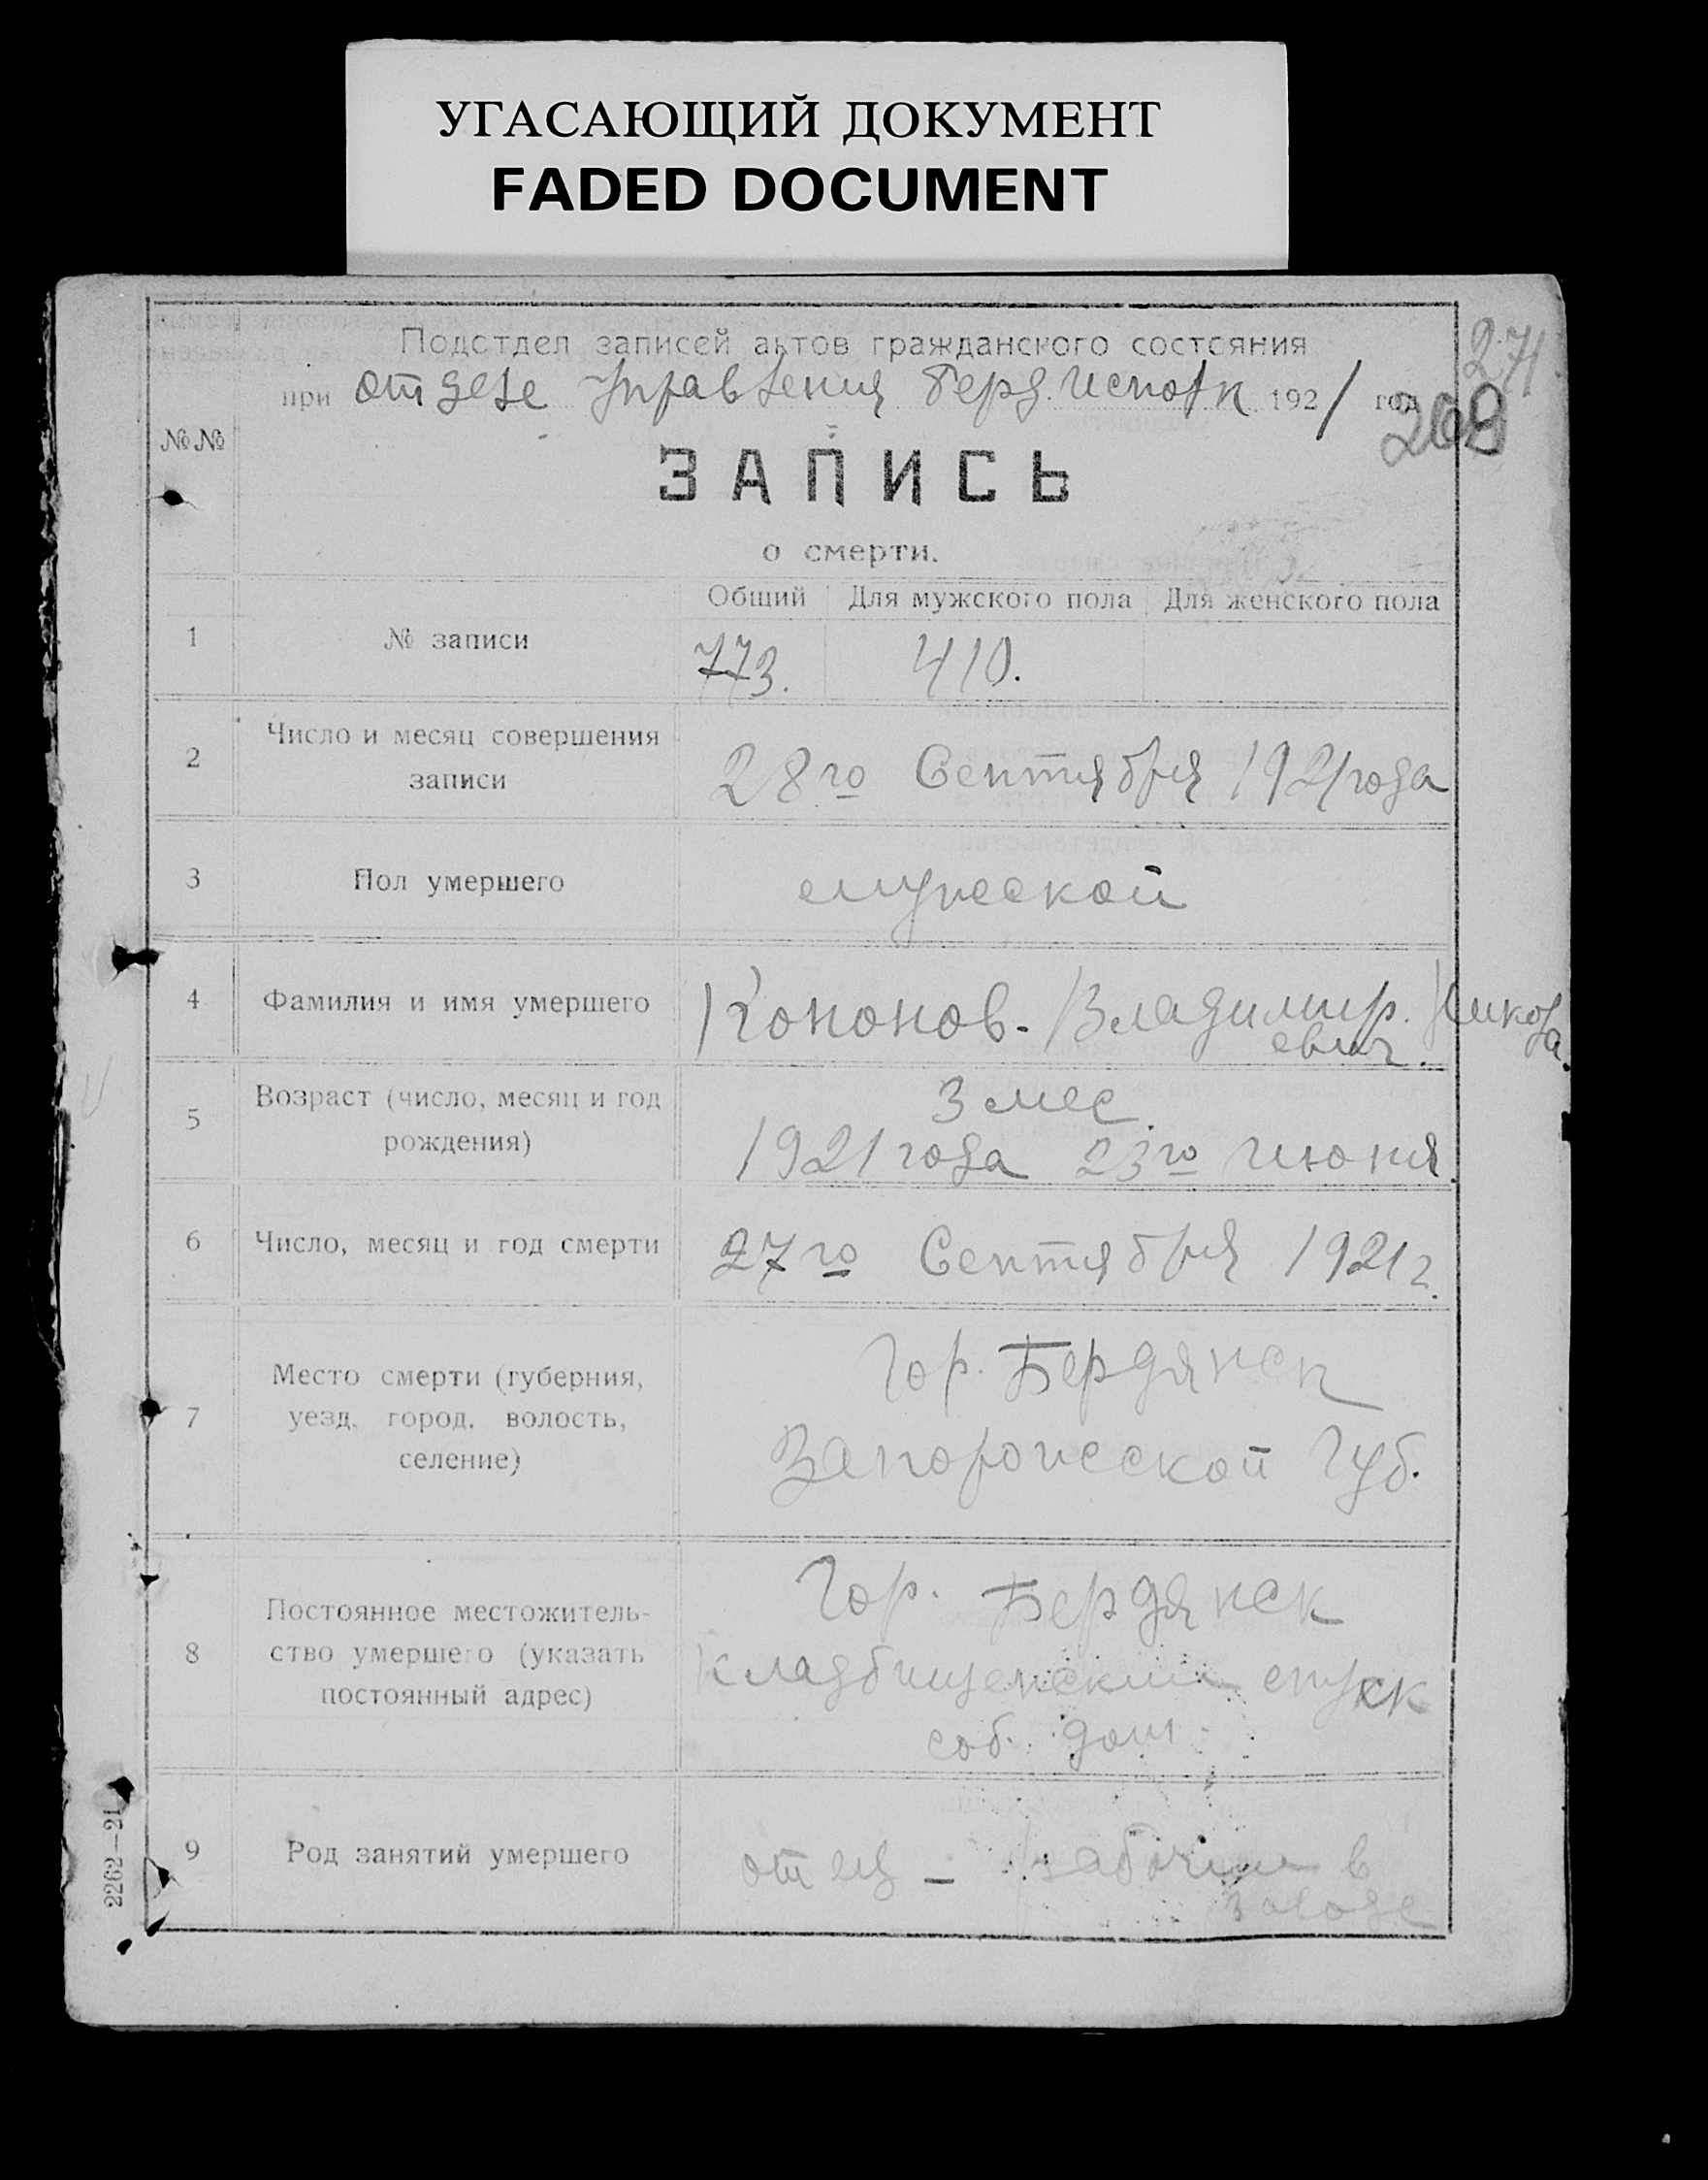 УГАСАЮЩИЙ ДОКУМЕНТ
FADED DOCUMENT
271
Подотдел записей актов гражданского состояния
при отделе Управления Берд. Исполк 1921 год
209
№№
ЗАПИСЬ
о смерти.
Общий Для мужского пола Для женского пола
1 № записи 773. 410.
2 Число и месяц совершения
записи
28го Сентября 1921 года
3 Пол умершего мужской
4 Фамилия и имя умершего Кононов. Владимир. Никола
евич.
5 Возраст (число, месяц и год
рождения)
3 мес.
1921 года 23го июня
6 Число, месяц и год смерти 27го Сентября 1921 г.
7 Место смерти (губерния,
уезд, город, волость,
селение)
Гор. Бердянск
Запорожской Губ.
8 Постоянное местожитель-
ство умершего (указать
постоянный адрес)
Гор. Бердянск
Кладбищенский спуск
соб. дом
9 Род занятий умершего отец – рабочий в
заводе
2262—21